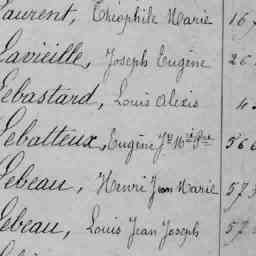 Laurent, Théophile Marie 167
Lavieille, Joseph Eugène 26
Lebastard, Louis Alexis 4
Lebatteux, Eugène Jh Mie Ane 566
Lebeau, Henri Jean Marie 573
Lebeau, Louis Jean Joseph 573